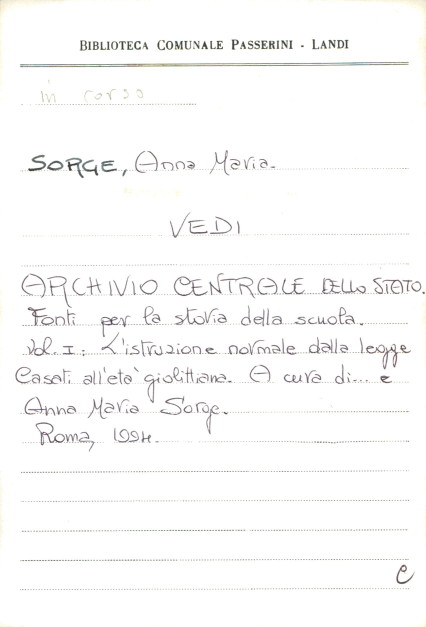 BIBLIOTECA COMUNALE PASSERINI - LANDI
in corso
SORGE, Anna Maria.
VEDI
ARCHIVIO CENTRALE DELLO STATO.
Fonti per la storia della scuola.
Vol. I: L'istruzione normale dalla legge
Casati all'età giolittiana. A cura di... e
Anna Maria Sorge.
Roma, 1994.
C